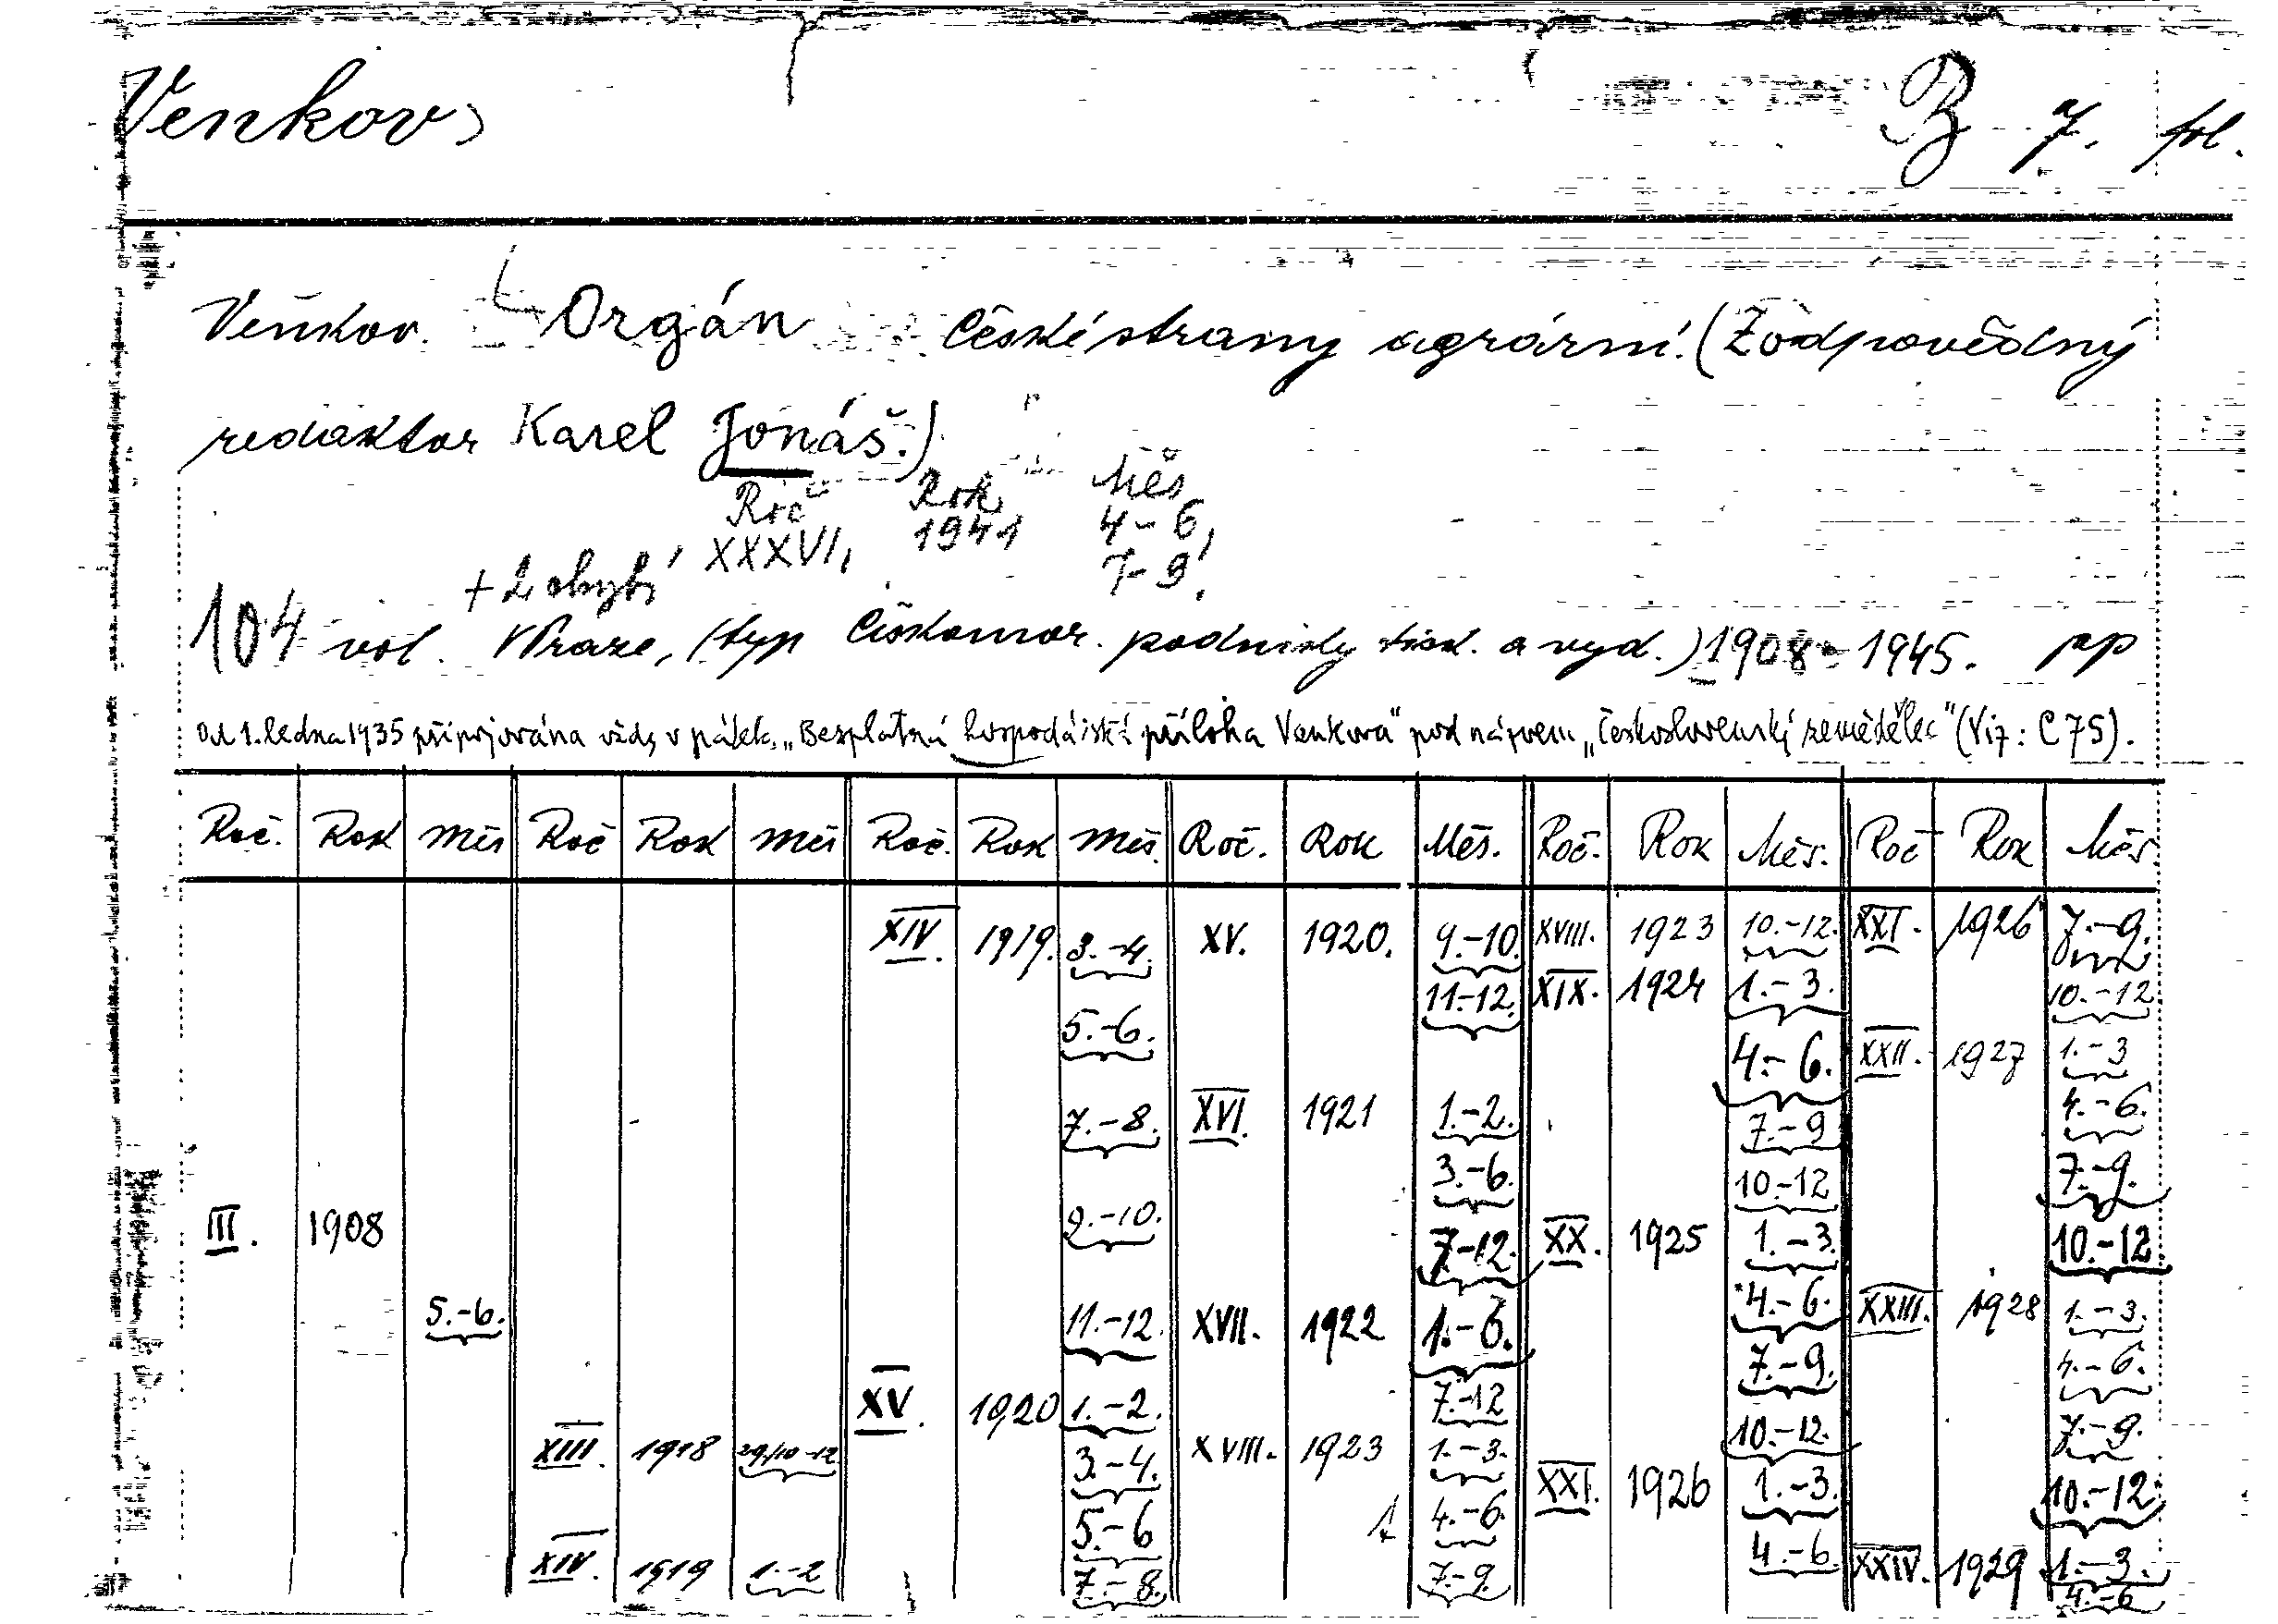 Venkov B 7. fol.
Venkov. Orgán České strany agrární. (Zodpovědný
redaktor Karel Jonáš.)
Roč Rok Měs
XXXVI, 1941 4-6,
+2 chybí 7-9.
104 vol. V Praze, (typ Českomor. podniky tisk. a vyd.) 1908-1945. pp
Od 1. ledna 1935 připojována vždy v pátek „Bezplatná hospodářská příloha Venkova" pod názvem „Československý zemědělec" (Viz: C 75).
Roč. Rok Měs Roč Rok Měs Roč. Rok Měs. Roč. Rok Měs. Roč. Rok Měs. Roč Rok Měs.
XIV. 1919. 3.-4. XV. 1920. 9.-10. XVIII. 1923 10.-12. XXI. 1926 7.-9.
11.-12. XIX. 1924 1.-3. 10.-12
5.-6. 4.-6. XXII. 1927 1.-3
7.-8. XVI. 1921 1.-2. 7.-9 4.-6.
3.-6. 10.-12 7.-9.
III. 1908 9.-10. 7-12. XX. 1925 1.-3. 10.-12
5.-6. 11.-12. XVII. 1922 1.-6. 4.-6. XXIII. 1928 1.-3.
7.-9. 4.-6.
XV. 1920 1.-2. 7.-12 10.-12. 7.-9.
XIII. 1918 29./10-12 3.-4. XVIII. 1923 1.-3. XXI. 1926 1.-3. 10.-12.
5.-6 4.-6.
XIV. 1919 1.-2 7.-8. 7.-9. 4.-6. XXIV. 1929 1.-3.
4.-6